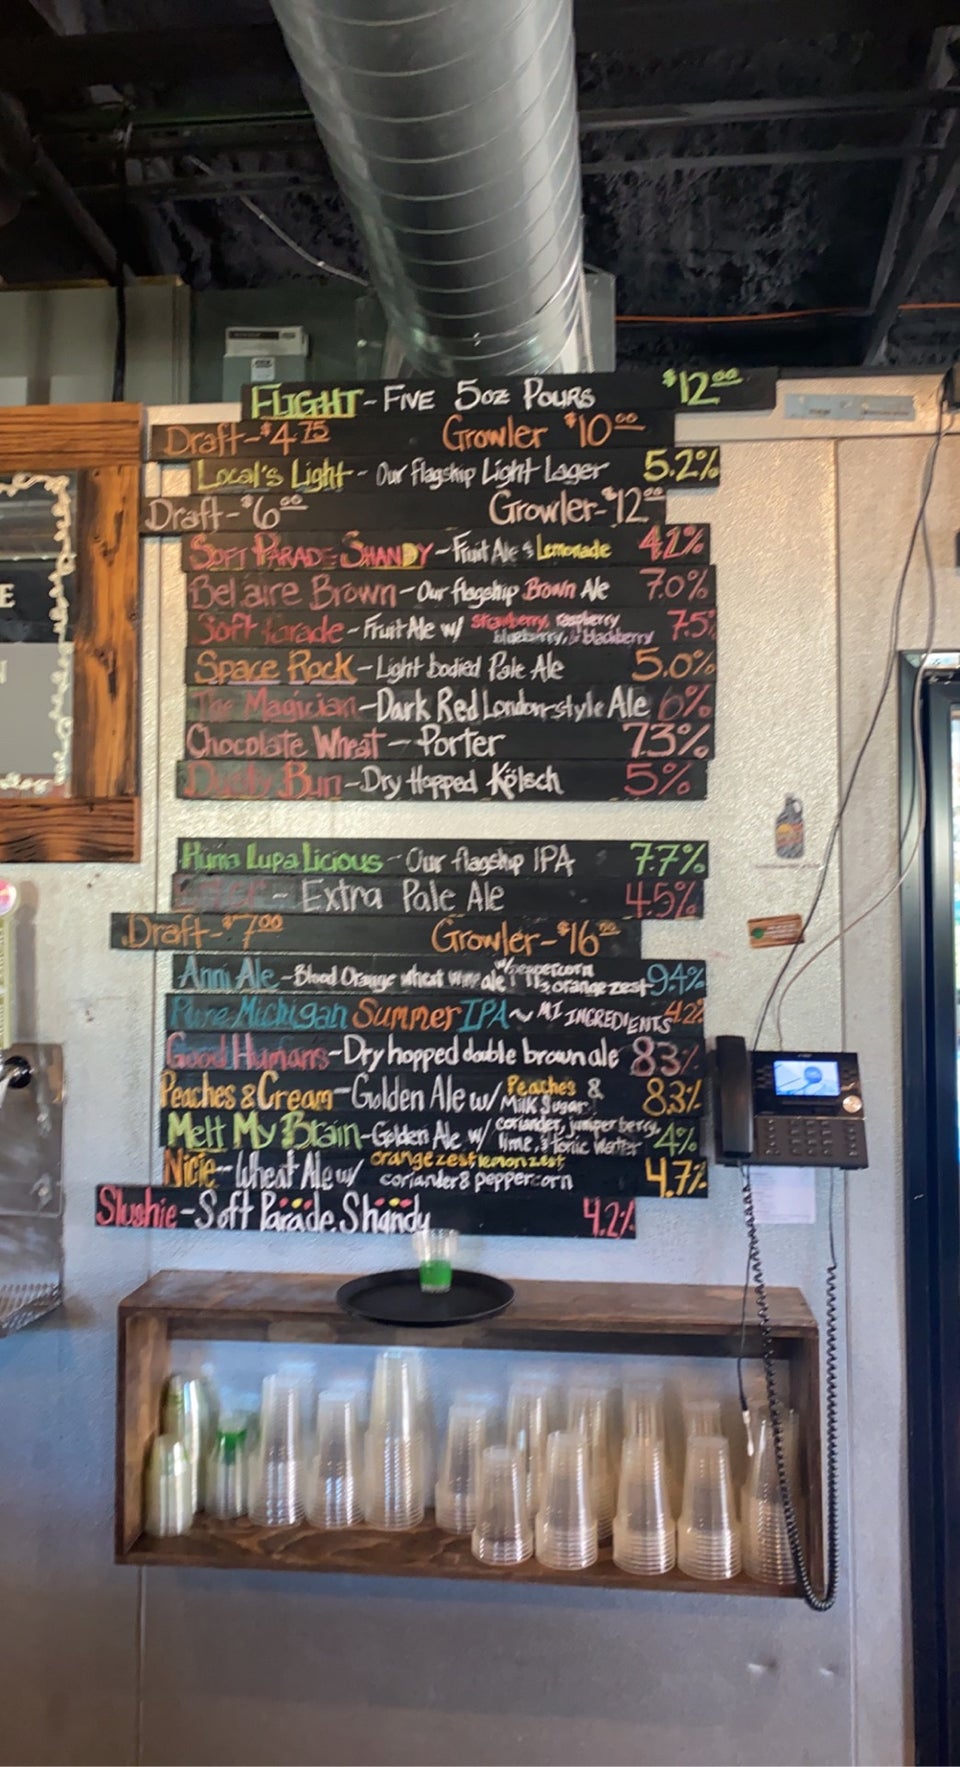 FLIGHT - FIVE 5oz POURS $12.00
Draft - $4.75 Growler $10.00
Local's Light - Our flagship Light Lager 5.2%
Draft - $6.00 Growler - $12.00
SOFT PARADE SHANDY - Fruit Ale & Lemonade 4.2%
Bellaire Brown - Our flagship Brown Ale 7.0%
Soft Parade - Fruit Ale w/ strawberry, raspberry 7.5%
blueberry, & blackberry
Space Rock - Light bodied Pale Ale 5.0%
The Magician - Dark Red London-style Ale 6%
Chocolate Wheat - Porter 7.3%
Dusty Bun - Dry Hopped Kölsch 5%
Huma Lupa Licious - Our flagship IPA 7.7%
- Extra Pale Ale 4.5%
Draft - $7.00 Growler - $16.00
Anni Ale - Blood Orange wheat ale w/ peppercorn 9.4%
& orange zest
Pure Michigan Summer IPA ~ MI INGREDIENTS
Good Humans - Dry hopped double brown ale 8.3%
Peaches & Cream - Golden Ale w/ Peaches & 8.3%
Milk Sugar
Melt My Brain - Golden Ale w/ coriander, juniper berry, 4%
lime, & tonic water
Nicie - Wheat Ale w/ orange zest lemon zest 4.7%
coriander & peppercorn
Slushie - Soft Parade Shandy 4.2%
E
N